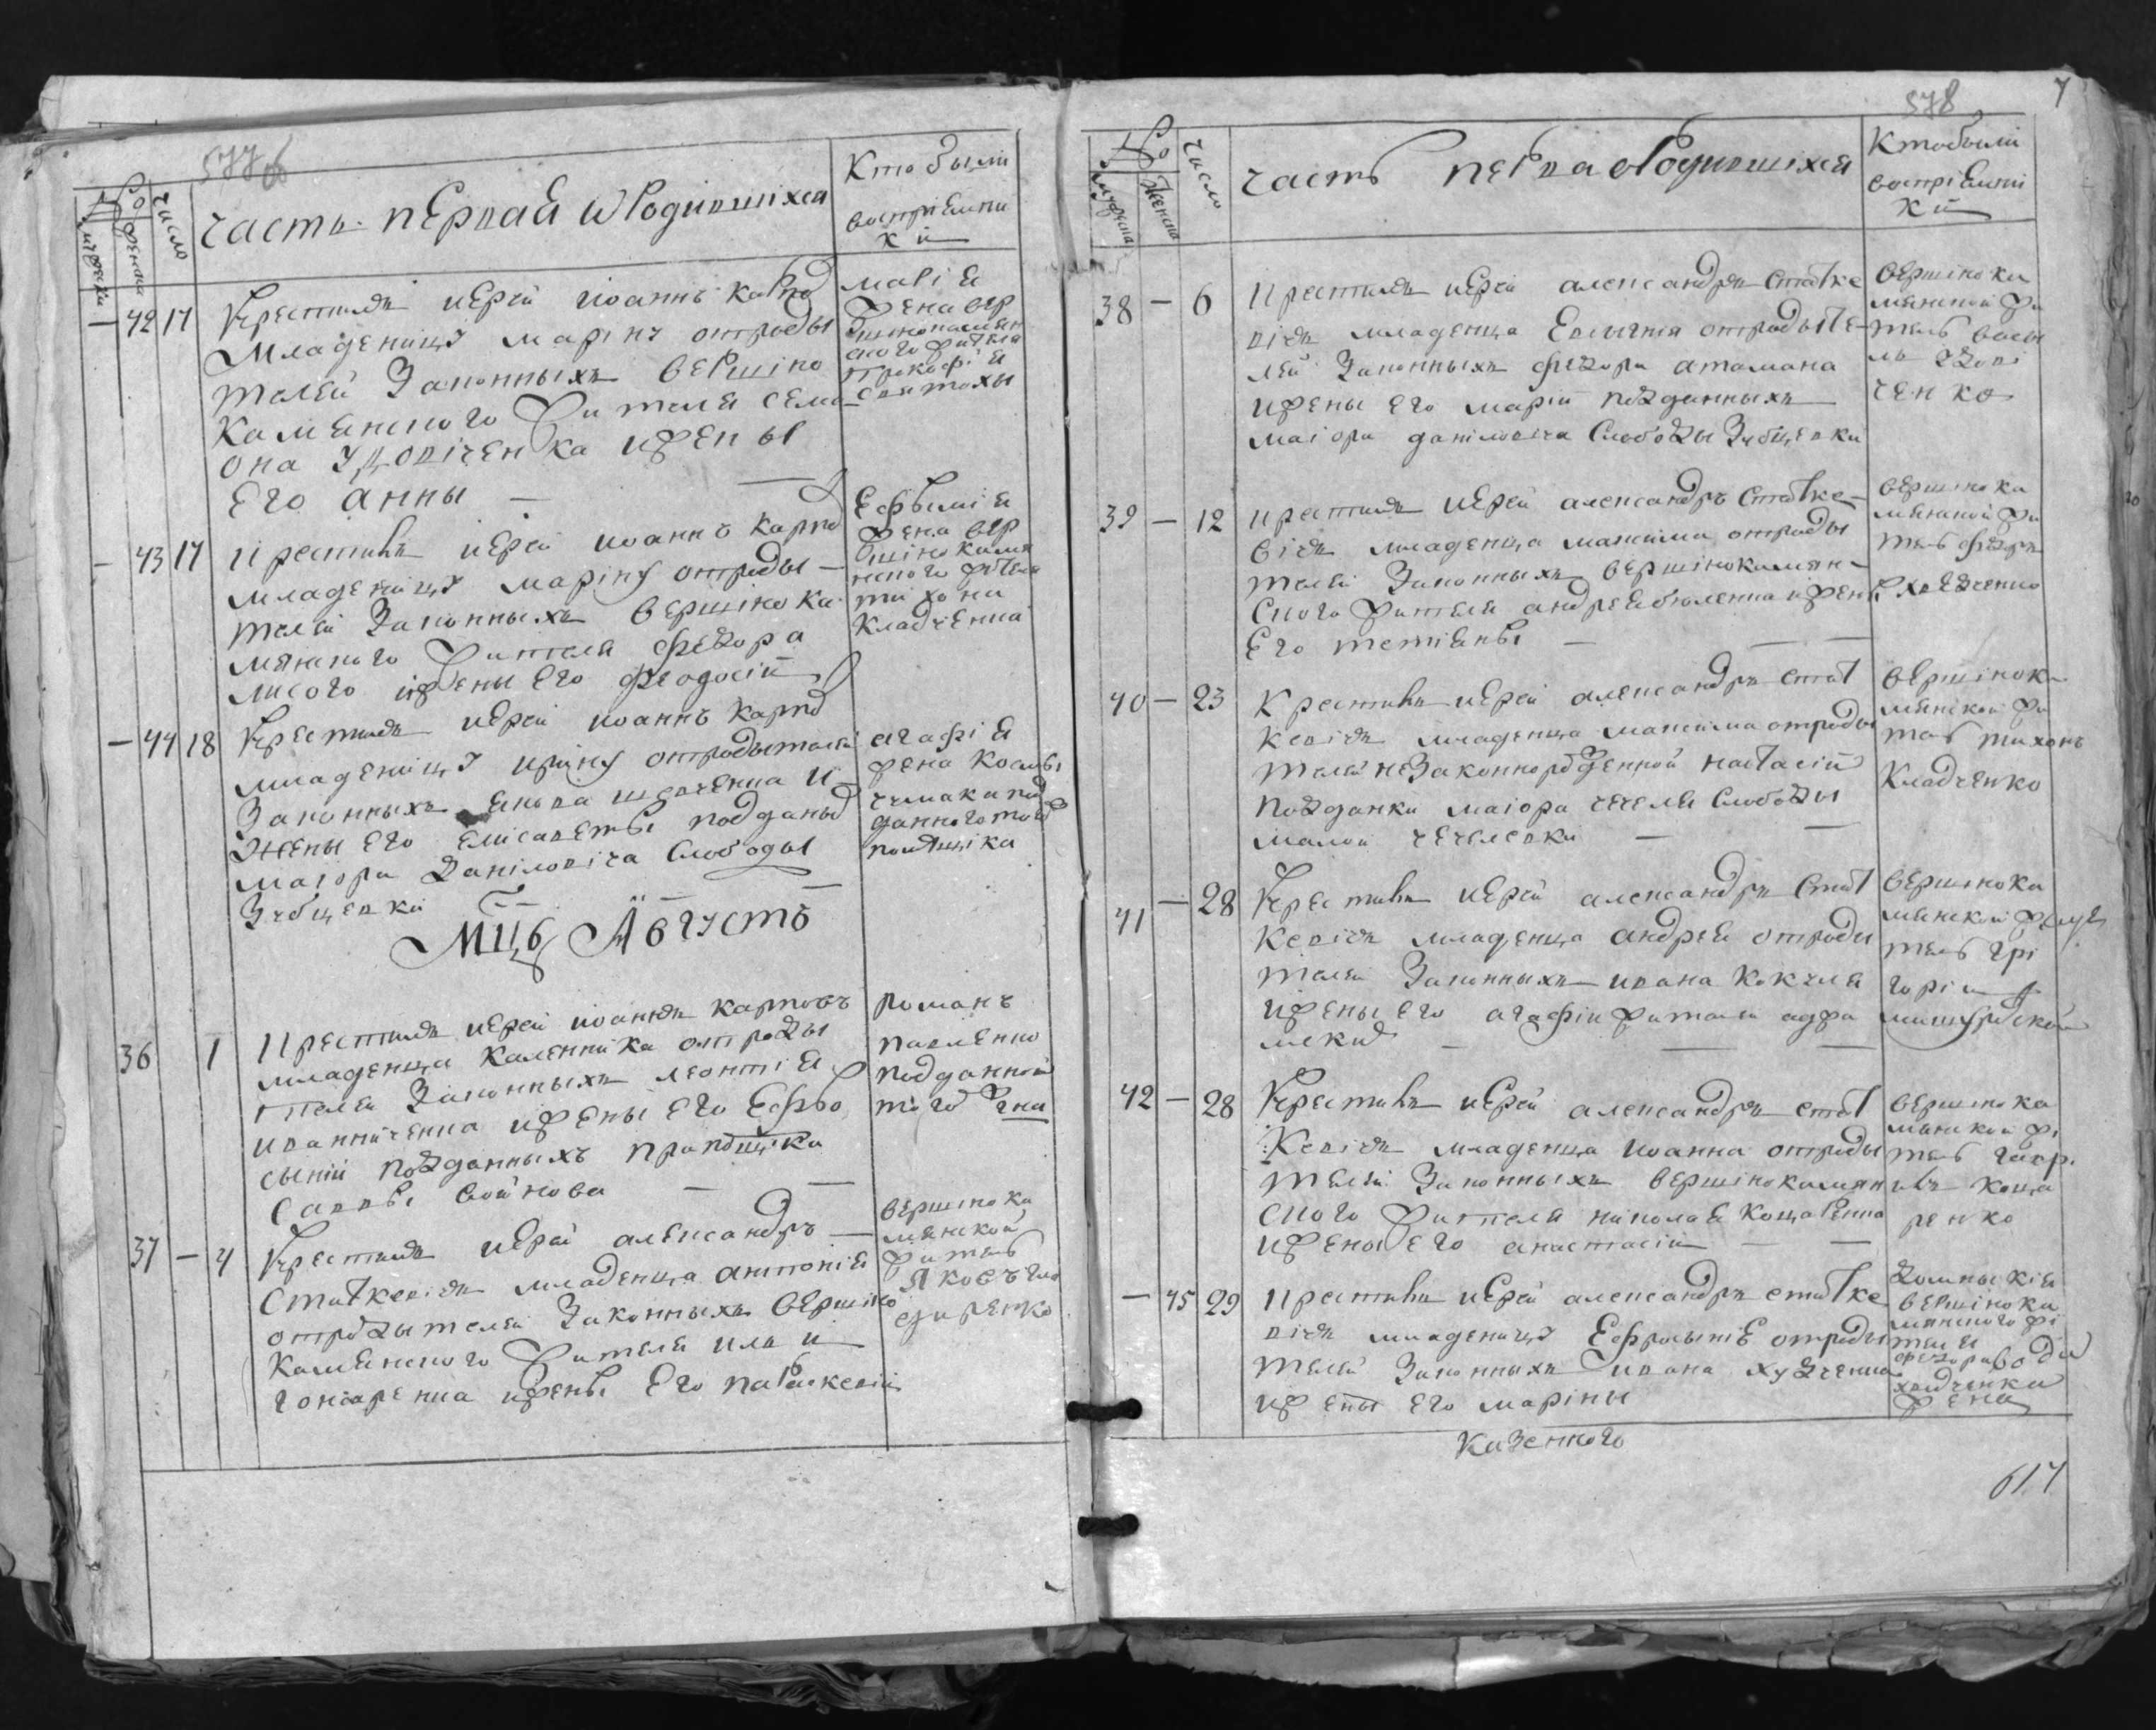 577об
№
мужеска
женска
число
часть первая о родившихся
Кто были
воспріемни
ки
— 42 17
Крестилъ иерей иоаннъ карпо
младеницу марину отроды
телей законныхъ вершіно
каменского жителя семи
она удовіченка ижены
его анны —
маріа
жена вер
шинокамен
ского жителя
прокофіа
— 43 17
Крестилъ иерей иоаннъ карпо
младеницу марину отроды —
телей законныхъ вершинока
менского жителя федора
лисого ижены его феодосіи
Ефиміа
жена вер
шінокаме
нского жителя
тихона
кладченка
— 44 18
Крестилъ иерей иоаннъ карпо
младеницу ирину отродытелей
законныхъ якова шевченка и
жены его елисаветы подданых
маіора даніловіча слободы
Зубцевки
агафіа
жена космы
чумака под
данного того
помѣщика
Мцъ Августъ
36 1
Крестилъ иерей иоаннъ карповъ
младенца каленника отроды
телей законныхъ леонтіа
иванниченка ижены его Ефро
сыніи подданныхъ прапорщика
саввы войнова —
романъ
павленко
подданной
того жъ
37 — 4
Крестилъ иерей александръ —
Статкевичъ младенца антоніа
отродытелей законныхъ вершіно
каменского жителя ильи
гончаренка ижены его параскевіи
вершинока
менской
житель
Яковъ
578
7
№
мужеска
женска
число
часть перва о родившихся
Кто были
воспріемни
ки
38 — 6
Крестилъ иерей александръ статке
вічъ младенца Евгенія отродыте-
лей законныхъ федора атамана
ижены его маріи подданныхъ
маіора даніловіча слободы Зубцевки
вершінока
менской жи
тель васи
ль удові
ченко
39 — 12
Крестилъ иерей александръ статке-
вічъ младенца максима отроды
телей законныхъ вершінокамен-
ского жителя андрея ижены
его тетіаны —
вершинока
менской жи
тель федоръ
40 — 23
Крестилъ иерей александръ стат
кевічъ младенца максима отроды
телей незаконнорожденной настасіи
подданки маіора чечеля слободы
малой чечелевки —
вершінока
менской жи
тель тихонъ
Кладченко
41 — 28
Крестилъ иерей александръ стат
кевічъ младенца андрея отроды
телей законныхъ ивана кокуля
ижены его агафіи жителя
вершинока
менской
тель грі
горій
42 — 28
Крестилъ иерей александръ стат
кевічъ младенца иоанна отроды
телей законныхъ вершінокамен
ского жителя николая коцаренка
ижены его анастасіи —
вершинока
менской жі
тель гавр
илъ коца
ренко
— 45 29
Крестилъ иерей александръ статке
вічъ младеницу Ефросынію отроды
телей законныхъ ивана худченка
ижены его марины
домникіа
вершінока
менского жі
теля
федора
жена
казенного
617